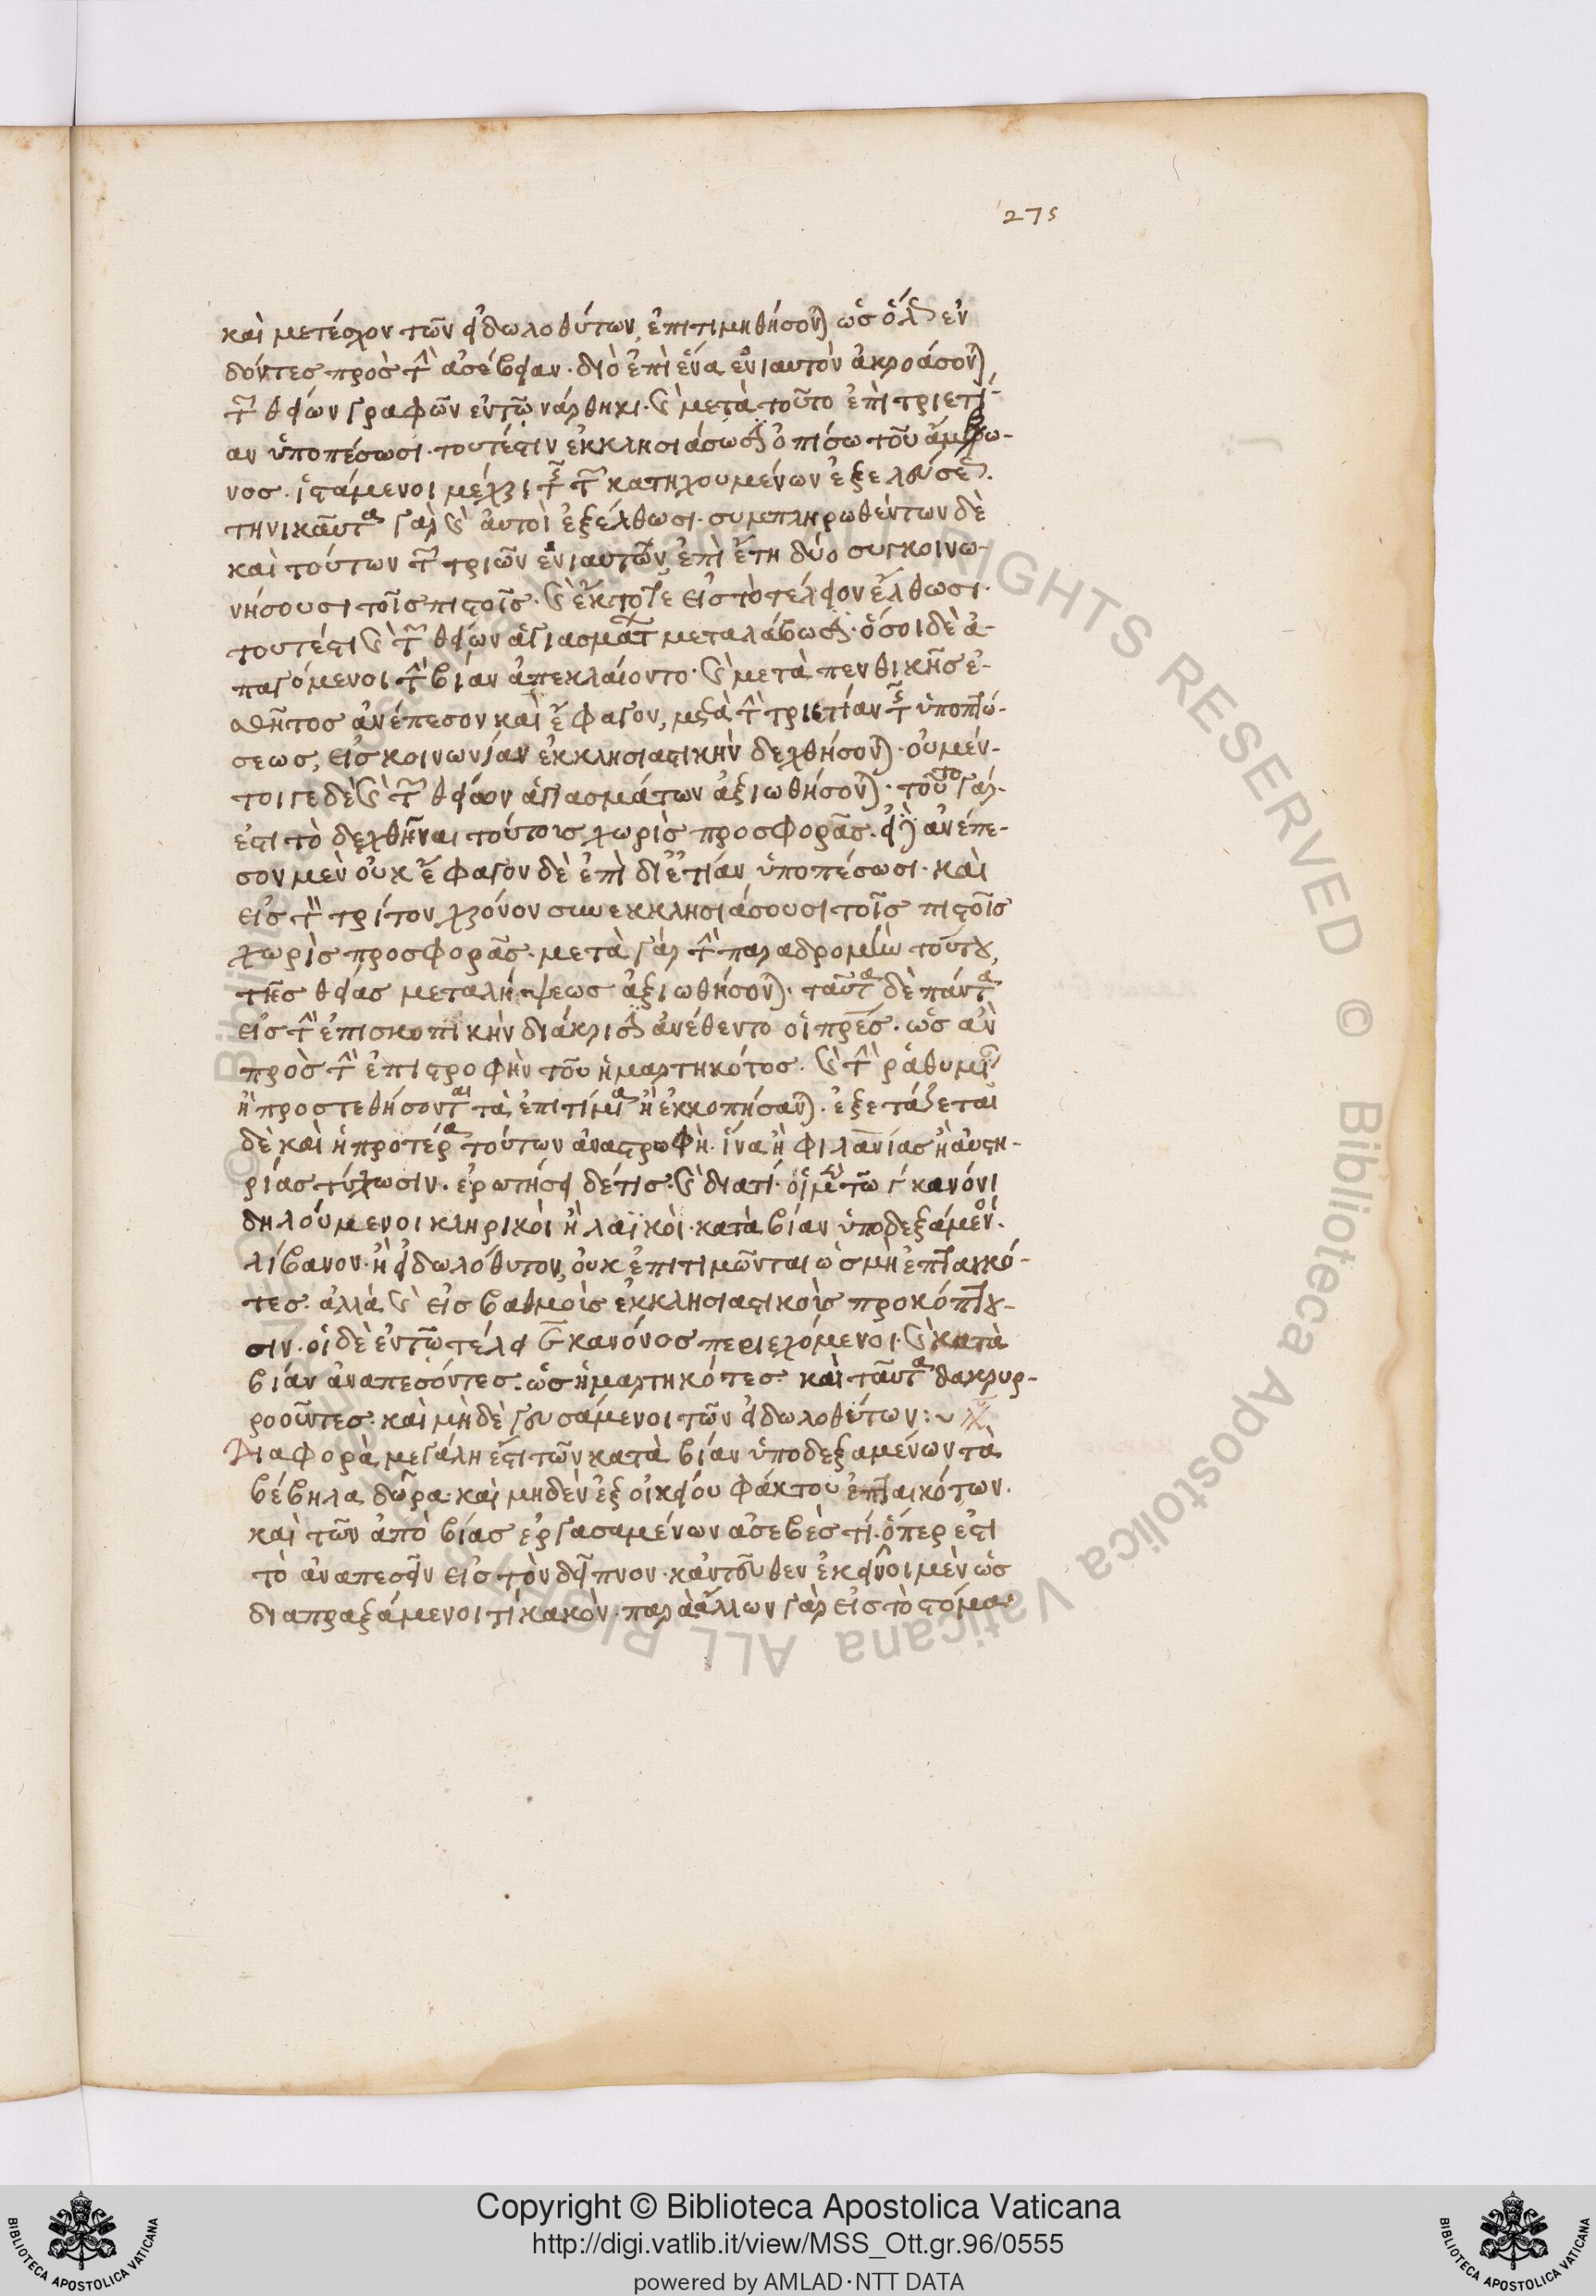 275
καὶ μετέσχον τῶν εἰδωλοθύτων, ἐπιτιμηθήσονται ὡς ἐν
δόντες πρὸς τὴν ἀσέβειαν· διὸ ἐπὶ ἕνα ἐνιαυτὸν ἀκροάσονται
τῶν θείων γραφῶν ἐν τῷ νάρθηκι· καὶ μετὰ τοῦτο ἐπὶ τριετί-
αν ὑποπέσωσι· τουτέστιν ἐκκλησιάσωσιν ὀπίσω τοῦ ἄμβω-
νος· ἱστάμενοι μέχρι τῆς τῶν κατηχουμένων ἐξελεύσεως.
τηνικαῦτα γὰρ καὶ αὐτοὶ ἐξέλθωσι· συμπληρωθέντων δὲ
καὶ τούτων τῶν τριῶν ἐνιαυτῶν, ἐπὶ ἔτη δύο συγκοινω-
νήσουσι τοῖς πιστοῖς· καὶ ἔκτοτε εἰς τὸ τέλειον ἔλθωσι·
τουτέστι καὶ τῶν θείων ἁγιασμάτων μεταλάβωσιν· ὅσοι δὲ ἀ-
παγόμενοι τὴν βίαν ἀπεκλαίοντο· καὶ μετὰ πενθικῆς ἐ-
σθῆτος ἀνέπεσον καὶ ἔφαγον, μετὰ τὴν τριετίαν τῆς ὑποπτώ-
σεως, εἰς κοινωνίαν ἐκκλησιαστικὴν δεχθήσονται· οὐ μέν-
τοι γε δὲ καὶ τῶν θείων ἁγιασμάτων ἀξιωθήσονται· τοῦτο γάρ
ἐστι τὸ δεχθῆναι τούτοις χωρὶς προσφορᾶς· εἰ δὲ ἀνέπε-
σον μὲν οὐκ ἔφαγον δὲ ἐπὶ διετίαν ὑποπέσωσι· καὶ
εἰς τὸν τρίτον χρόνον συνεκκλησιάσουσι τοῖς πιστοῖς
χωρὶς προσφορᾶς· μετὰ γὰρ τὴν παραδρομὴν τούτου,
τῆς θείας μεταλήψεως ἀξιωθήσονται· ταῦτα δὲ πάντα
εἰς τὴν ἐπισκοπικὴν διάκρισιν ἀνέθεντο οἱ πρες· ὡς ἂν
πρὸς τὴν ἐπιστροφὴν τοῦ ἡμαρτηκότος· καὶ τὴν ῥαθυμίαν
ἢ προστεθήσονται τὰ ἐπιτίμια ἢ ἐκκοπήσονται· ἐξετάζεται
δὲ καὶ ἡ προτέρα τούτων ἀναστροφή· ἵνα ἢ φιλανίας ἢ αὐστη-
ρίας τύχωσιν· ἐρωτήσει δέ τις· καὶ διατί· οἱ μὲν τῷ γ κανόνι
δηλούμενοι κληρικοὶ ἢ λαϊκοὶ· κατὰ βίαν ὑποδεξάμενοι
λίβανον· ἢ εἰδωλόθυτον, οὐκ ἐπιτιμῶνται ὡς μὴ ἐπταικό-
τες· ἀλλὰ καὶ εἰς βαθμοὺς ἐκκλησιαστικοὺς προκόπτου-
σιν· οἱ δὲ ἐν τῷ τέλει τοῦ κανόνος περιεχόμενοι· καὶ κατὰ
βίαν ἀναπεσόντες· ὡς ἡμαρτηκότες· καὶ ταῦτα δακρυρ-
ροοῦντες· καὶ μὴ δὲ γευσάμενοι τῶν εἰδωλοθύτων:~
Διαφορὰ μεγάλη ἐστὶ τῶν κατὰ βίαν ὑποδεξαμένων τὰ
βέβηλα δῶρα· καὶ μηδὲν ἐξ οἰκείου φάκτου ἐπταικότων.
καὶ τῶν ἀπὸ βίας ἐργασαμένων ἀσεβές τι· ὅπερ ἐστὶ
τὸ ἀναπεσεῖν εἰς τὸν δεῖπνον· κἀντεῦθεν ἐκεῖνοι μὲν ὡς
διαπραξάμενοί τι κακὸν· παρὰ ἄλλων γὰρ εἰς τὸ στόμα
Copyright © Biblioteca Apostolica Vaticana
http://digi.vatlib.it/view/MSS_Ott.gr.96/0555
powered by AMLAD·NTT DATA
BIBLIOTECA APOSTOLICA VATICANA
BIBLIOTECA APOSTOLICA VATICANA